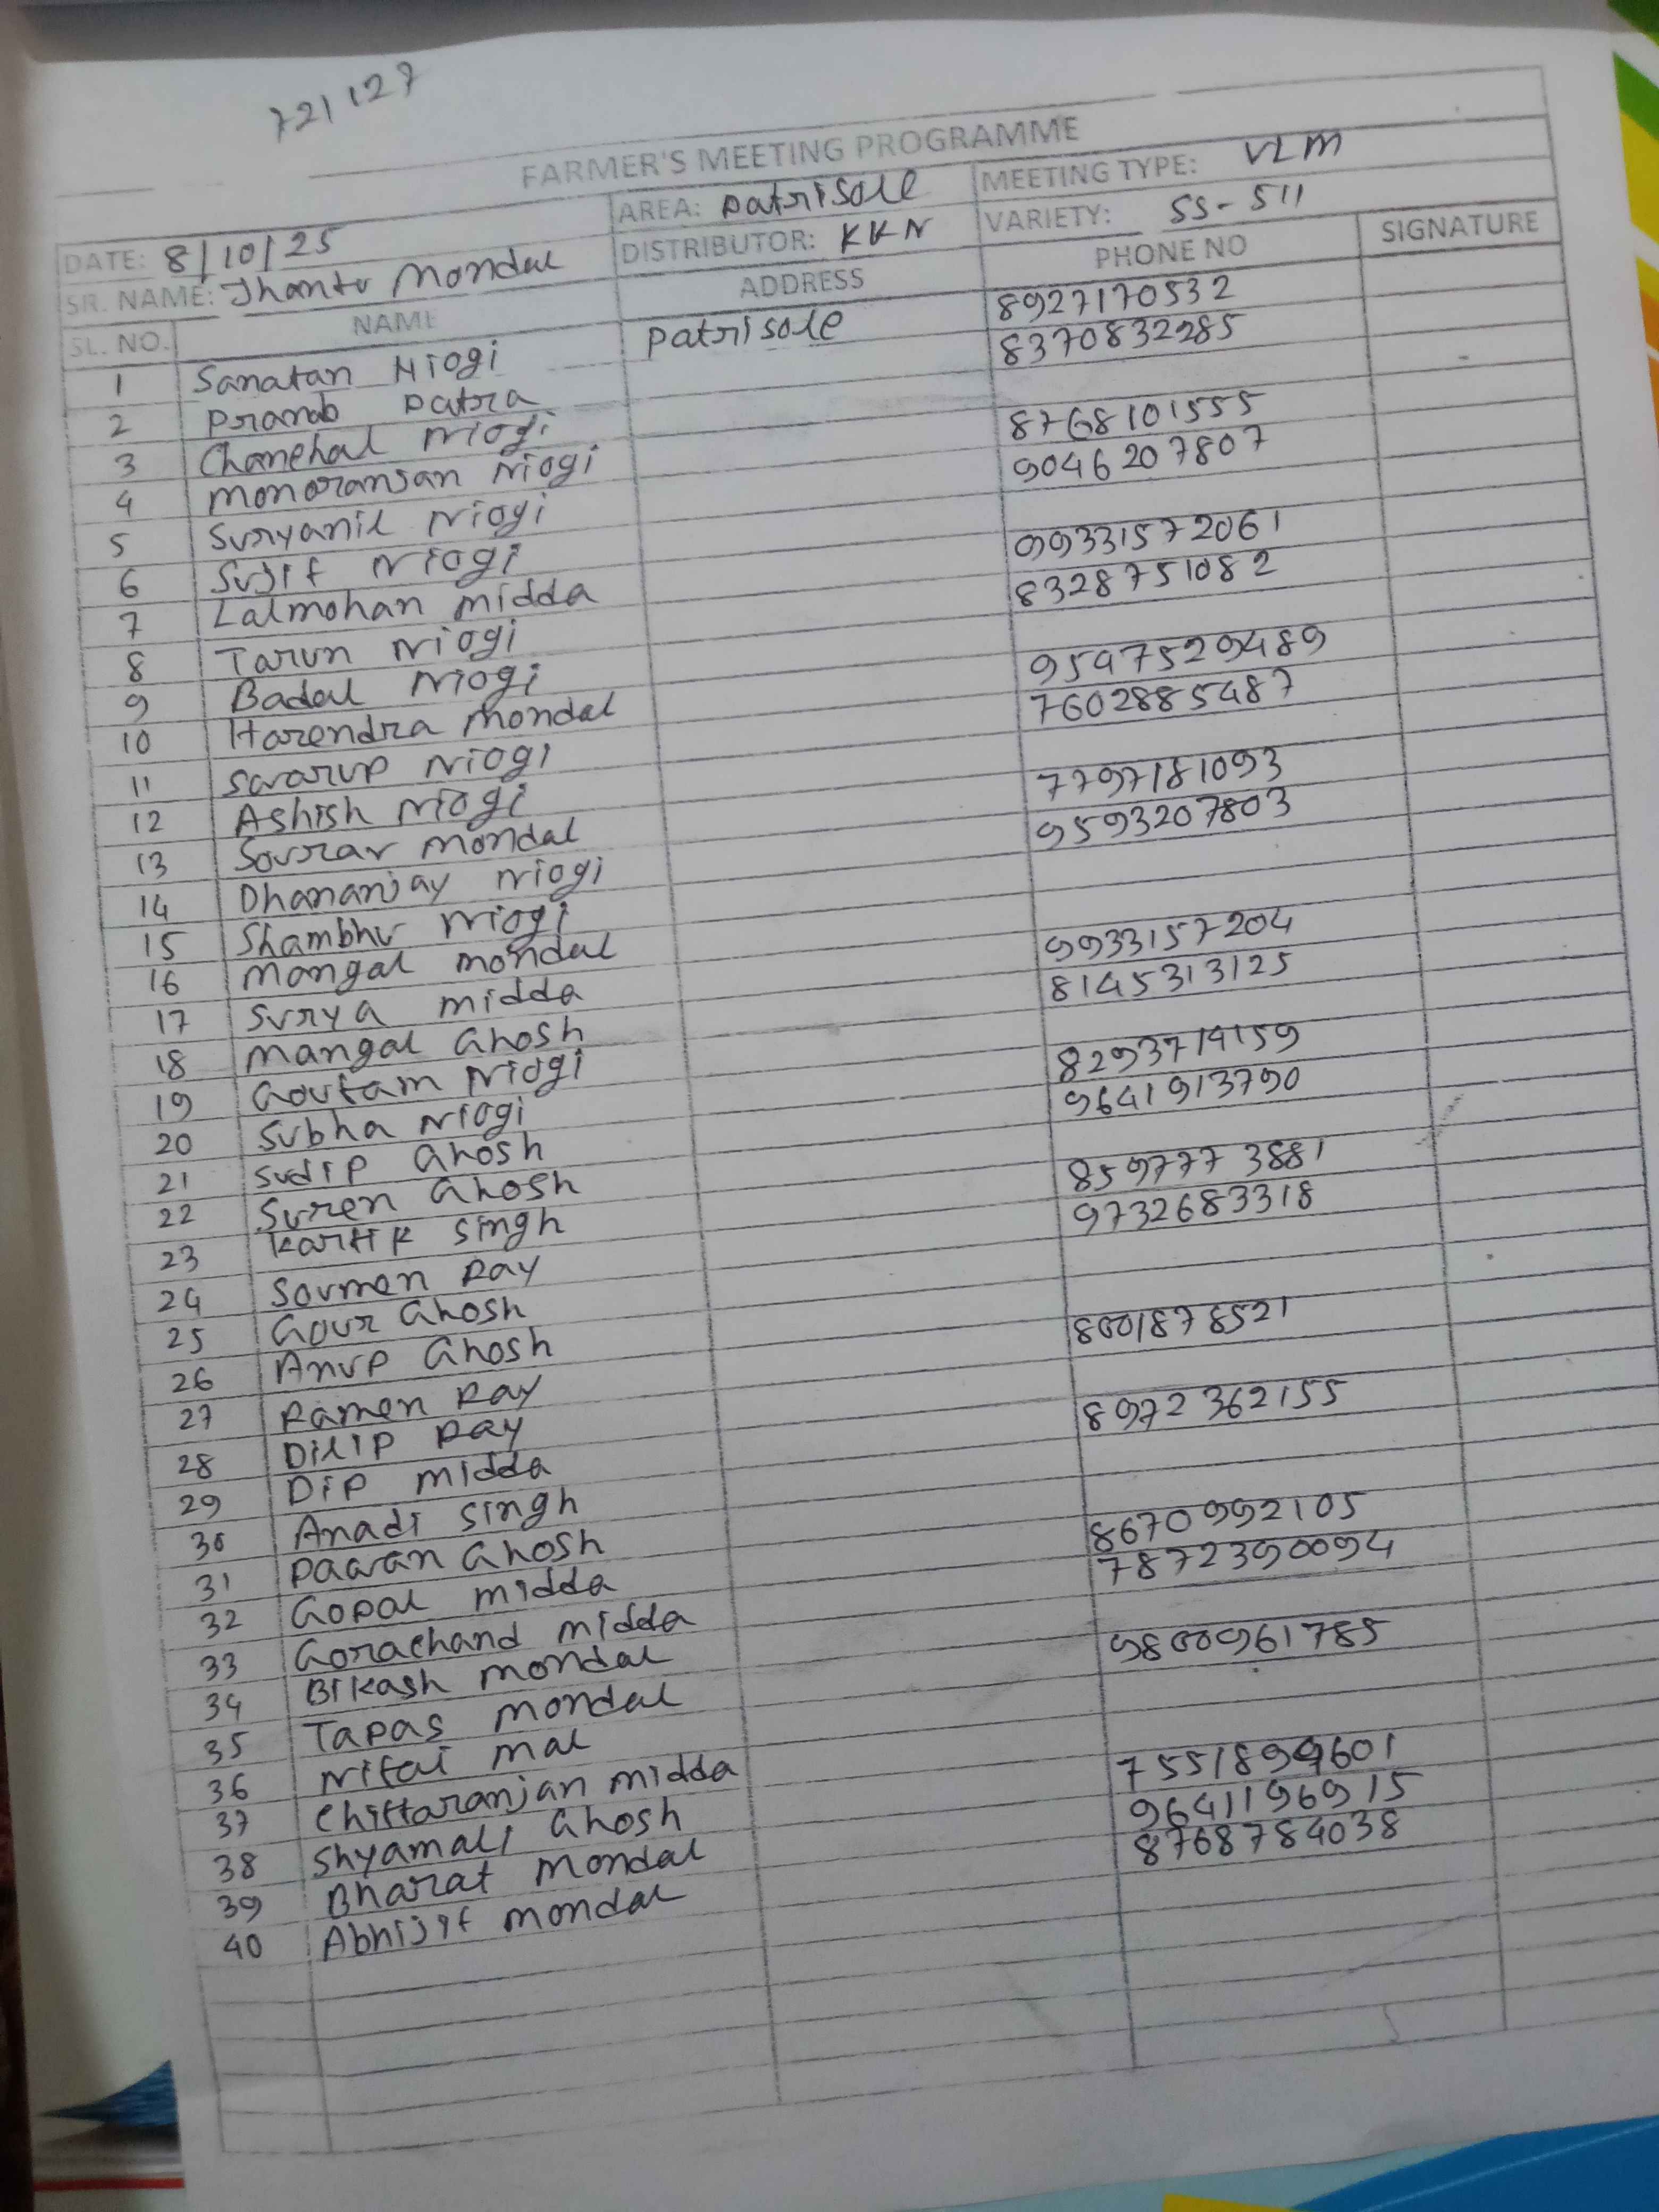 721127
FARMER'S MEETING PROGRAMME
DATE: 8/10/25 AREA: Patrisole MEETING TYPE: VLM
SR. NAME: Jhantu Mondal DISTRIBUTOR: KKN VARIETY: SS-511
SL. NO. NAME ADDRESS PHONE NO SIGNATURE
1 Sanatan Niogi Patrisole 8927170532
2 Pranab Patra 8370832285
3 Chanchal Niogi
4 Monoranjan Niogi 8768101555
5 Suryanil Niogi 9046207807
6 Sujit Niogi
7 Lalmohan Midda 99331572061
8 Tarun Niogi 8328751082
9 Badal Niogi
10 Harendra Mondal 9547529489
11 Swarup Niogi 7602885487
12 Ashish Niogi
13 Sourav Mondal 7797181093
14 Dhananjay Niogi 9593207803
15 Shambhu Niogi
16 Mangal Mondal
17 Surya Midda 9933157204
18 Mangal Ghosh 8145313125
19 Goutam Niogi
20 Subha Niogi 8293714159
21 Sudip Ghosh 9641913790
22 Suren Ghosh
23 Kartik Singh 8597773881
24 Soumen Ray 9732683318
25 Gour Ghosh
26 Anup Ghosh
27 Ramen Ray 8001878521
28 Dilip Ray
29 Dip Midda 8972362155
30 Anadi Singh
31 Pawan Ghosh
32 Gopal Midda 8670992105
33 Gorachand Midda 7872390094
34 Bikash Mondal
35 Tapas Mondal 9800961785
36 Nitai Mal
37 Chittaranjan Midda
38 Shyamali Ghosh 7551899601
39 Bharat Mondal 9641196915
40 Abhijit Mondal 8768784038